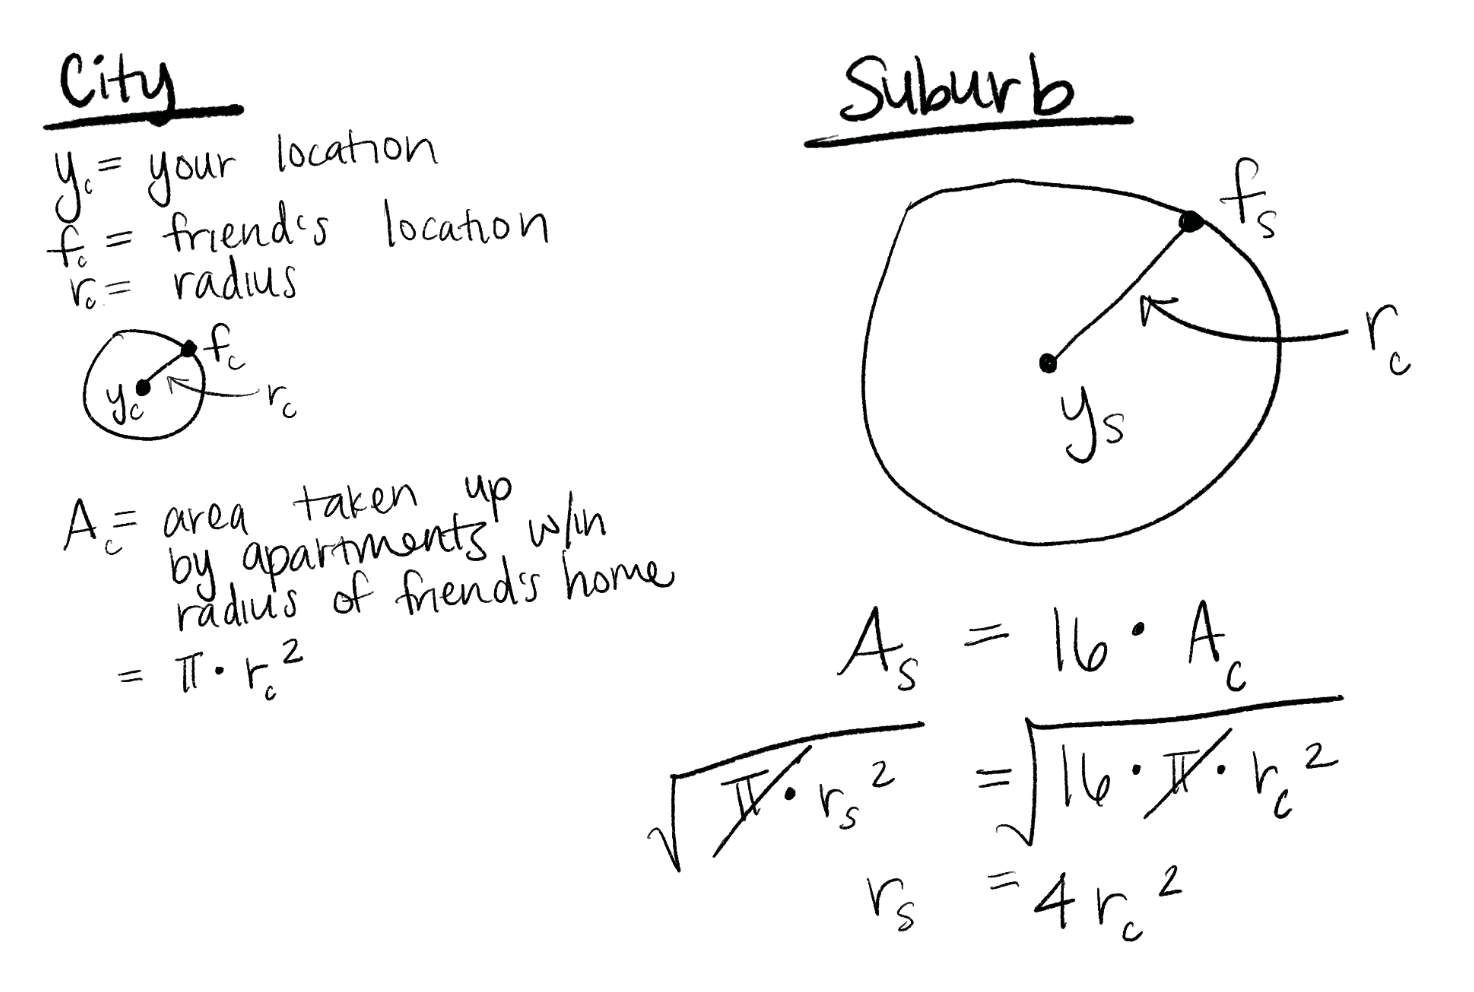 City
y_c = your location
f_c = friend's location
r_c = radius
f_c
y_c
r_c
A_c = area taken up
by apartments w/in
radius of friend's home
= π · r_c²
Suburb
f_s
r_c
y_s
A_s = 16 · A_c
√(π · r_s²) = √(16 · π · r_c²)
r_s = 4 r_c²